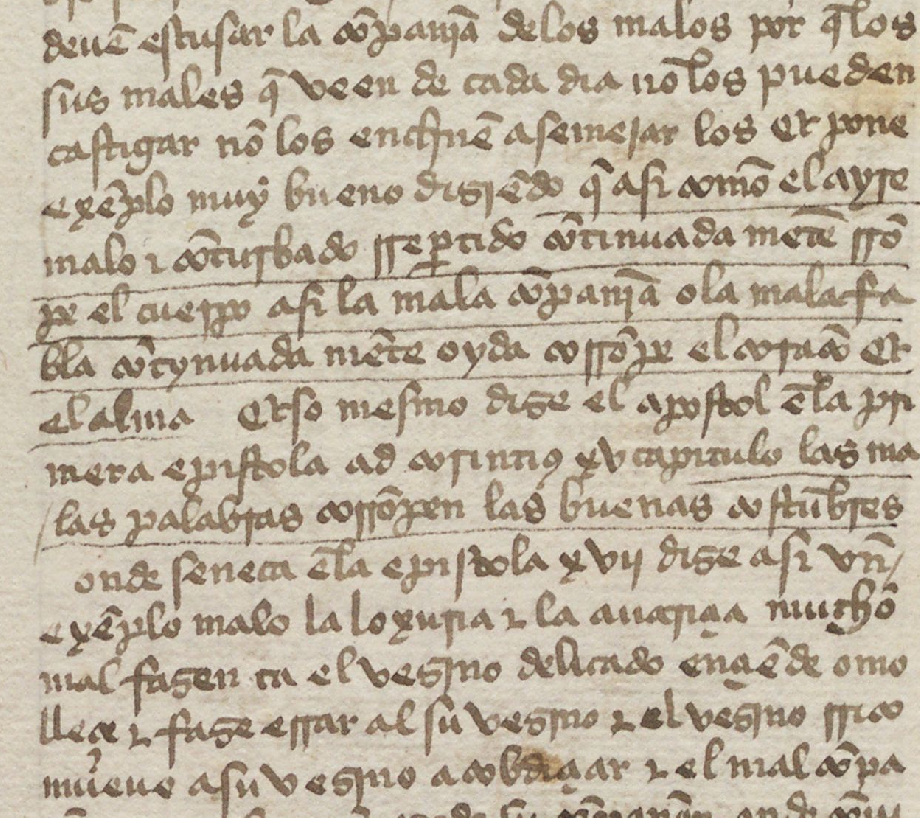 deuẽ escusar la cõpañia delos malos por q̃ los
sus males q̃ veen de cada dia nõ los pueden
castigar nõ los enclinẽ a semejar los Et pone
exẽplo muy bueno diziẽdo q̃ asi com̃o el ayre
malo ⁊ cõturbado rreçebido cõtinuada mẽte rrõ
pe el cuerpo asi la mala cõpañia o la mala fa
bla cõtynuada mẽte oyda corrõpe el coraçõ Et
el alma Esso mesmo dize el apostol ẽla pri
mera epistola ad corintios xv capitulo las ma
las palabras corrõpen las buenas costũbres
onde seneca ẽla epistola xvii dize asi vñ
exẽplo malo la loxuria ⁊ la auariçia mucho
mal fazen ca el vezino delicado ençiẽde omo
lleçe ⁊ faze errar al su vezino ⁊ el vezino rrico
mueue a su vezino a cobdiçiar ⁊ el mal cõpa